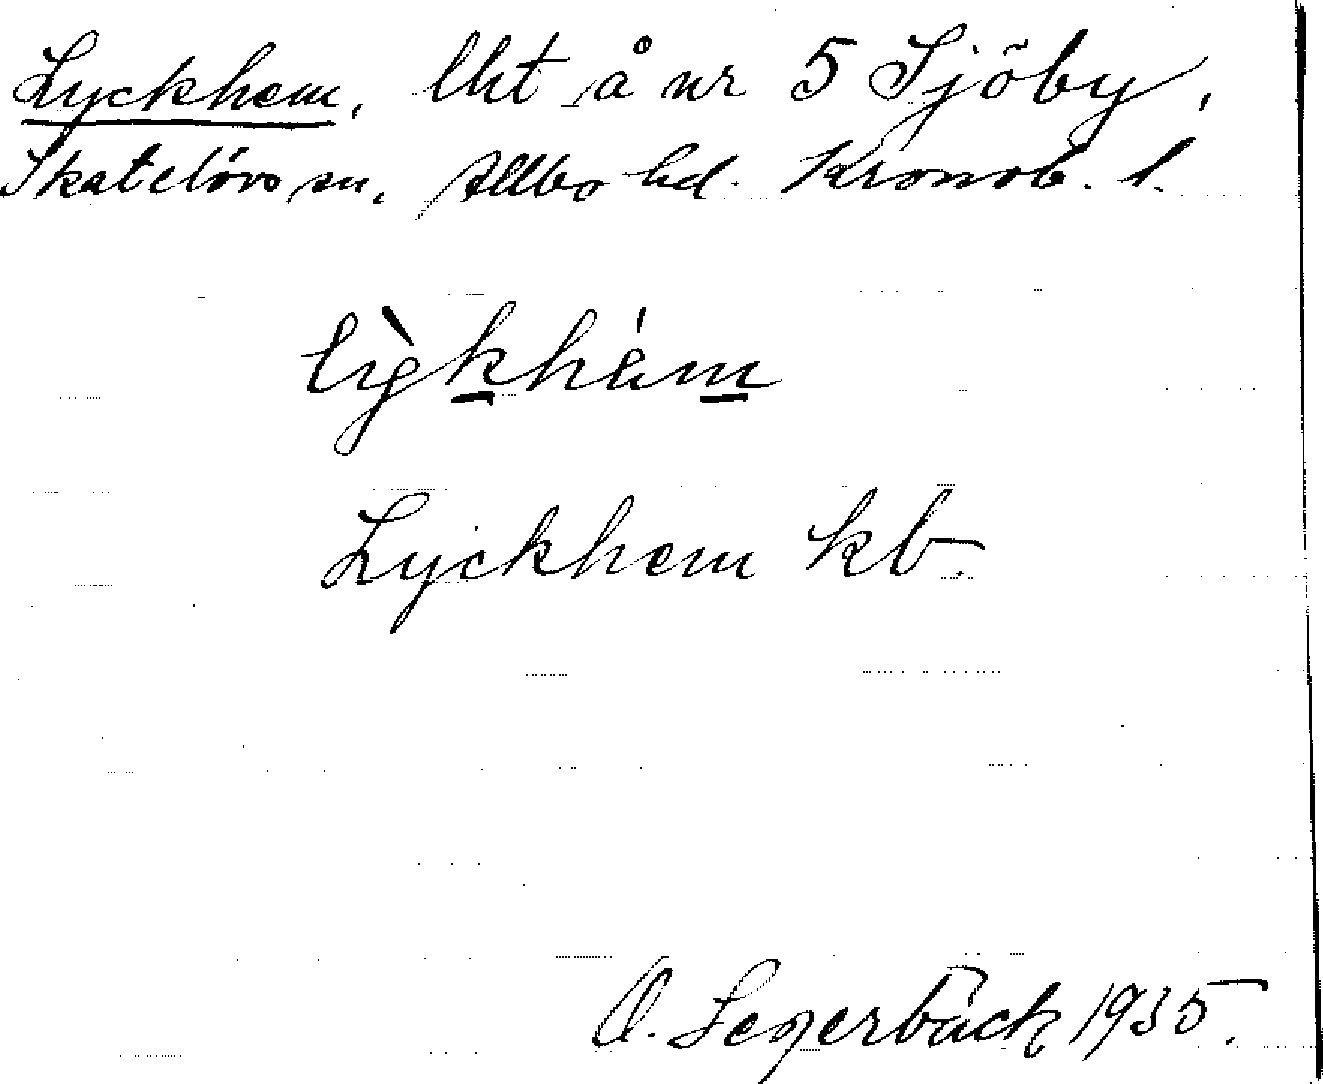 Lyckhem, lht å nr 5 Sjöby,
Skatelövs sn, Allbo hd. Kronob. l.
lỳkhém
Lyckhem kb.
O. Segerbäck 1935.